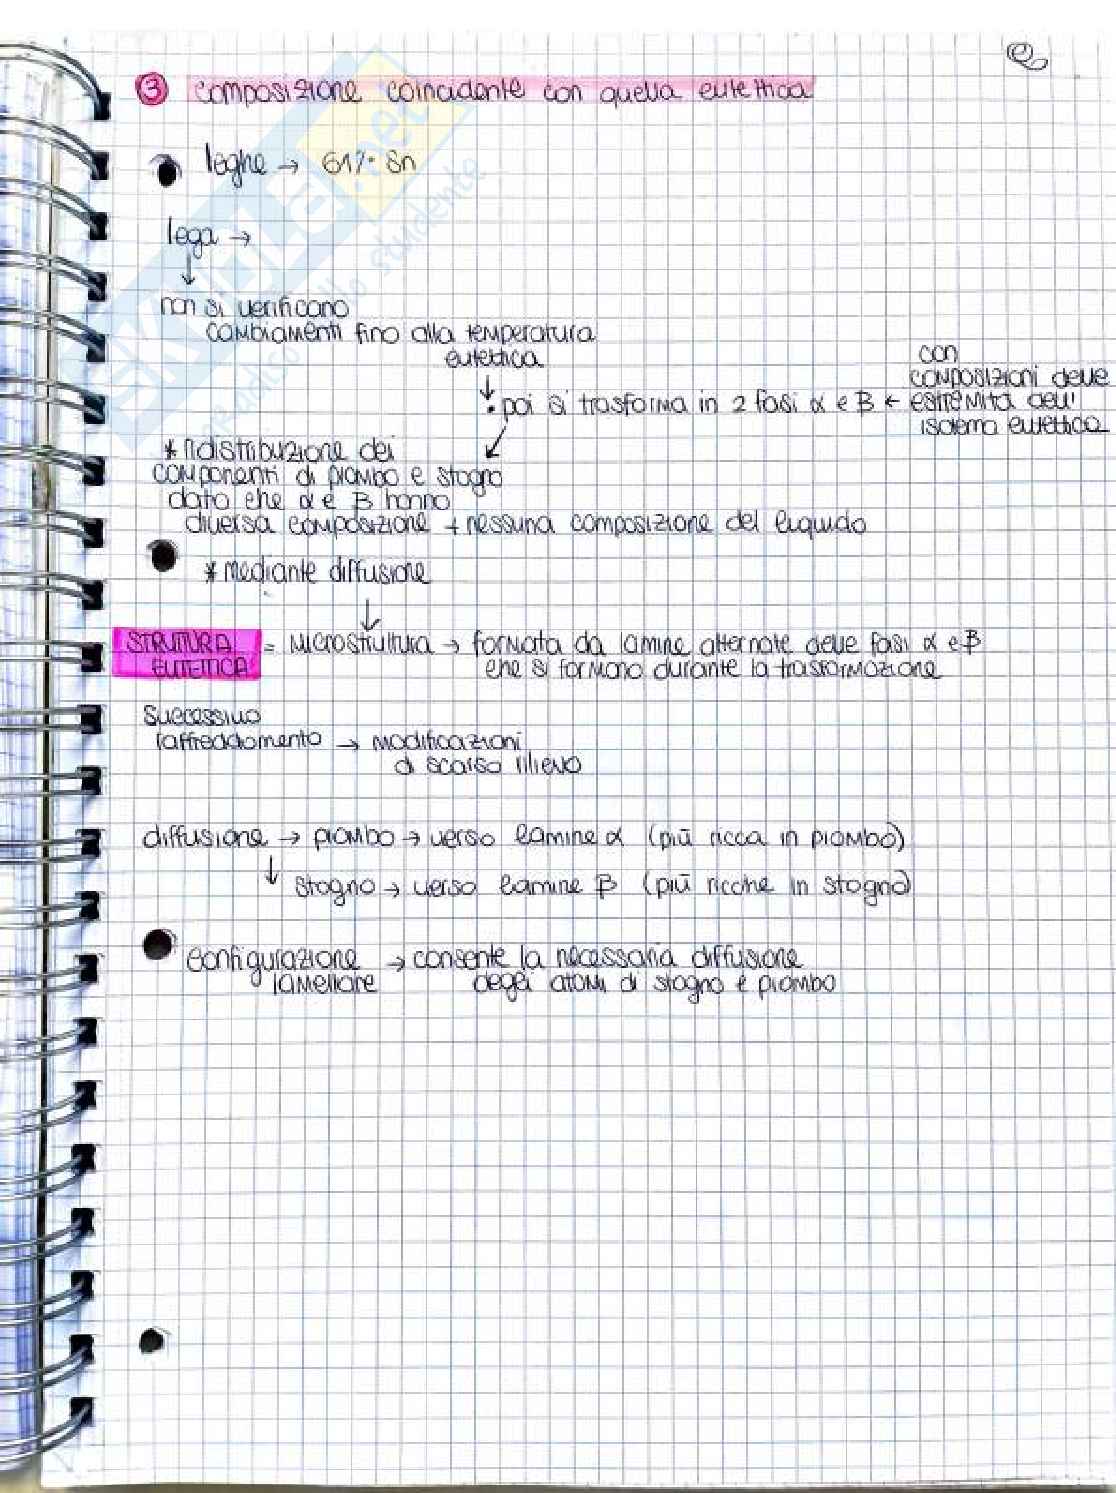 ③ composizione coincidente con quella eutettica
leghe → 61% Sn
lega →
↓
non si verificano
cambiamenti fino alla temperatura
eutettica
↓
poi si trasforma in 2 fasi α e β ← con
composizioni delle
estremità dell'
isoterma eutettica
* ridistribuzione dei
componenti di piombo e stagno
dato che α e β hanno
diversa composizione + nessuna composizione del liquido
* mediante diffusione
↓
STRUTTURA
EUTETTICA
= microstruttura → formata da lamine alternate delle fasi α e β
che si formano durante la trasformazione
Successivo
raffreddamento → modificazioni
di scarso rilievo
diffusione → piombo → verso lamine α (più ricca in piombo)
↓ stagno → verso lamine β (più ricche in stagno)
configurazione → consente la necessaria diffusione
lamellare degli atomi di stagno e piombo
SKUOLA.net